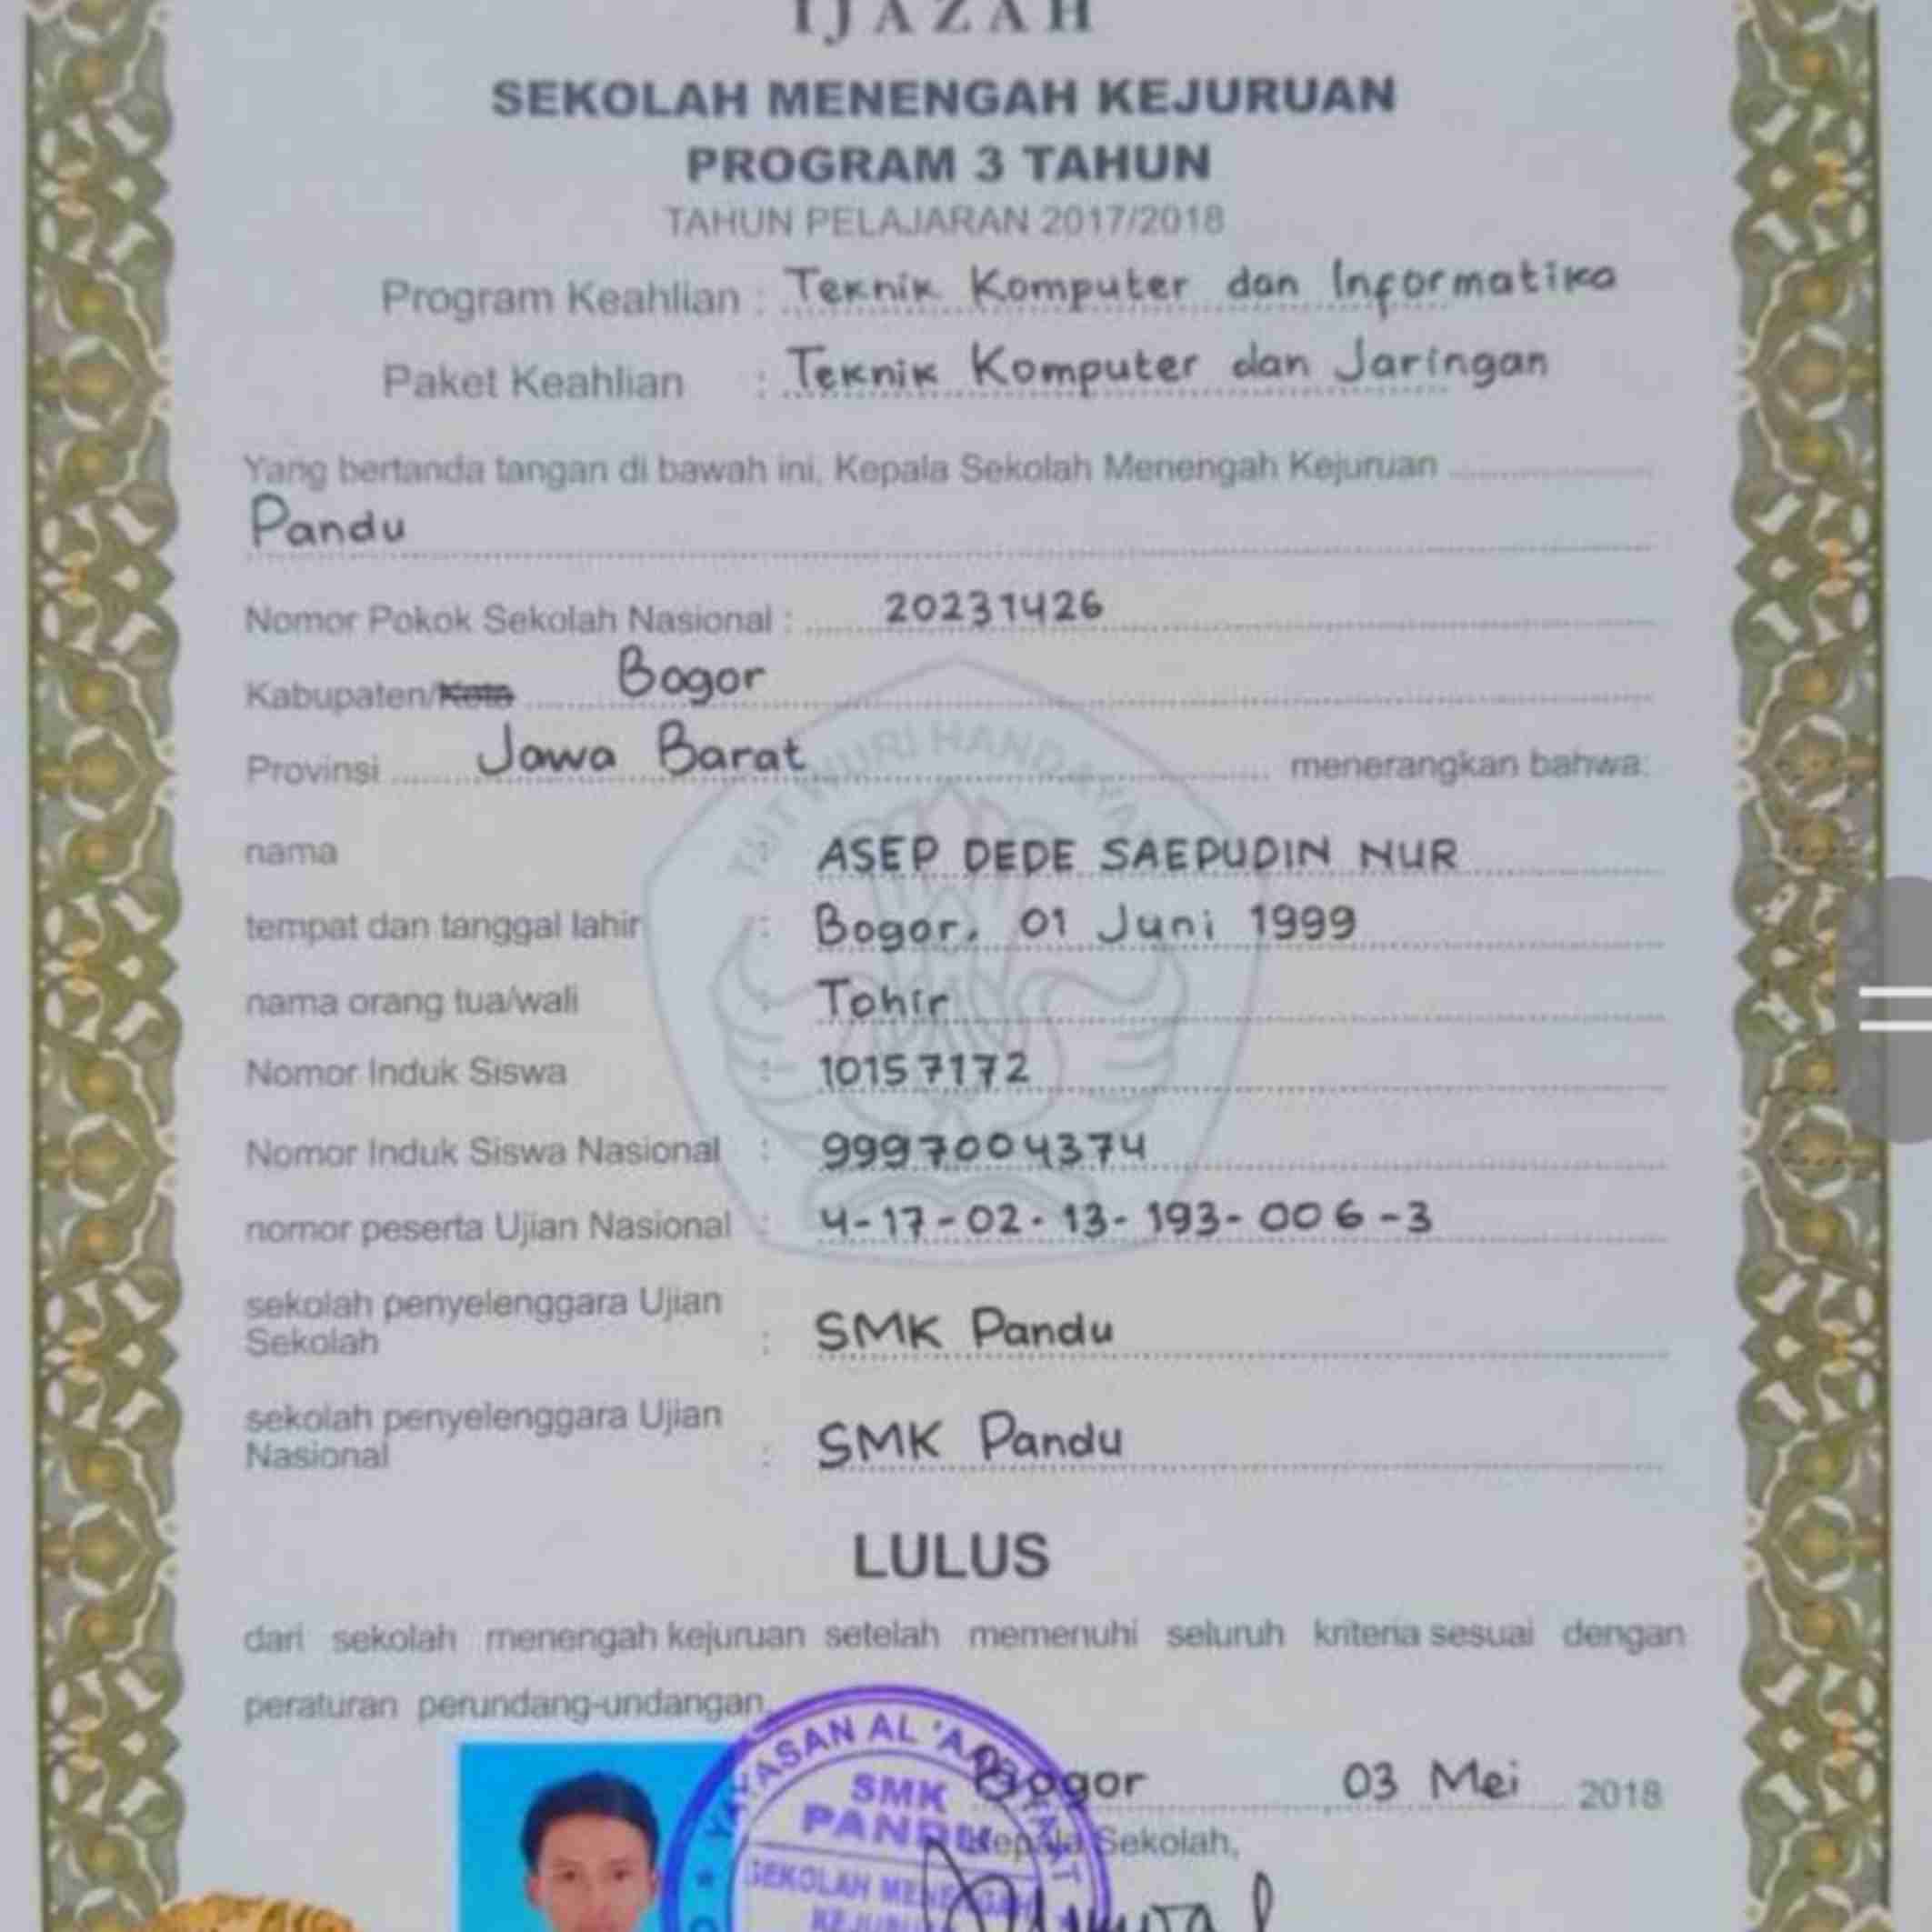 IJAZAH
SEKOLAH MENENGAH KEJURUAN
PROGRAM 3 TAHUN
TAHUN PELAJARAN 2017/2018
Program Keahlian : Teknik Komputer dan Informatika
Paket Keahlian : Teknik Komputer dan Jaringan
Yang bertanda tangan di bawah ini, Kepala Sekolah Menengah Kejuruan
Pandu
Nomor Pokok Sekolah Nasional : 20231426
Kabupaten/Kota Bogor
Provinsi Jawa Barat menerangkan bahwa:
TUT WURI HANDAYANI
nama ASEP DEDE SAEPUDIN NUR
tempat dan tanggal lahir : Bogor, 01 Juni 1999
nama orang tua/wali : Tohir
Nomor Induk Siswa : 10157172
Nomor Induk Siswa Nasional : 9997004374
nomor peserta Ujian Nasional : 4-17-02-13-193-006-3
sekolah penyelenggara Ujian
Sekolah : SMK Pandu
sekolah penyelenggara Ujian
Nasional : SMK Pandu
LULUS
dari sekolah menengah kejuruan setelah memenuhi seluruh kriteria sesuai dengan
peraturan perundang-undangan.
YAYASAN AL
SMK
PANDU
SEKOLAH MENENGAH
Bogor 03 Mei 2018
Kepala Sekolah,